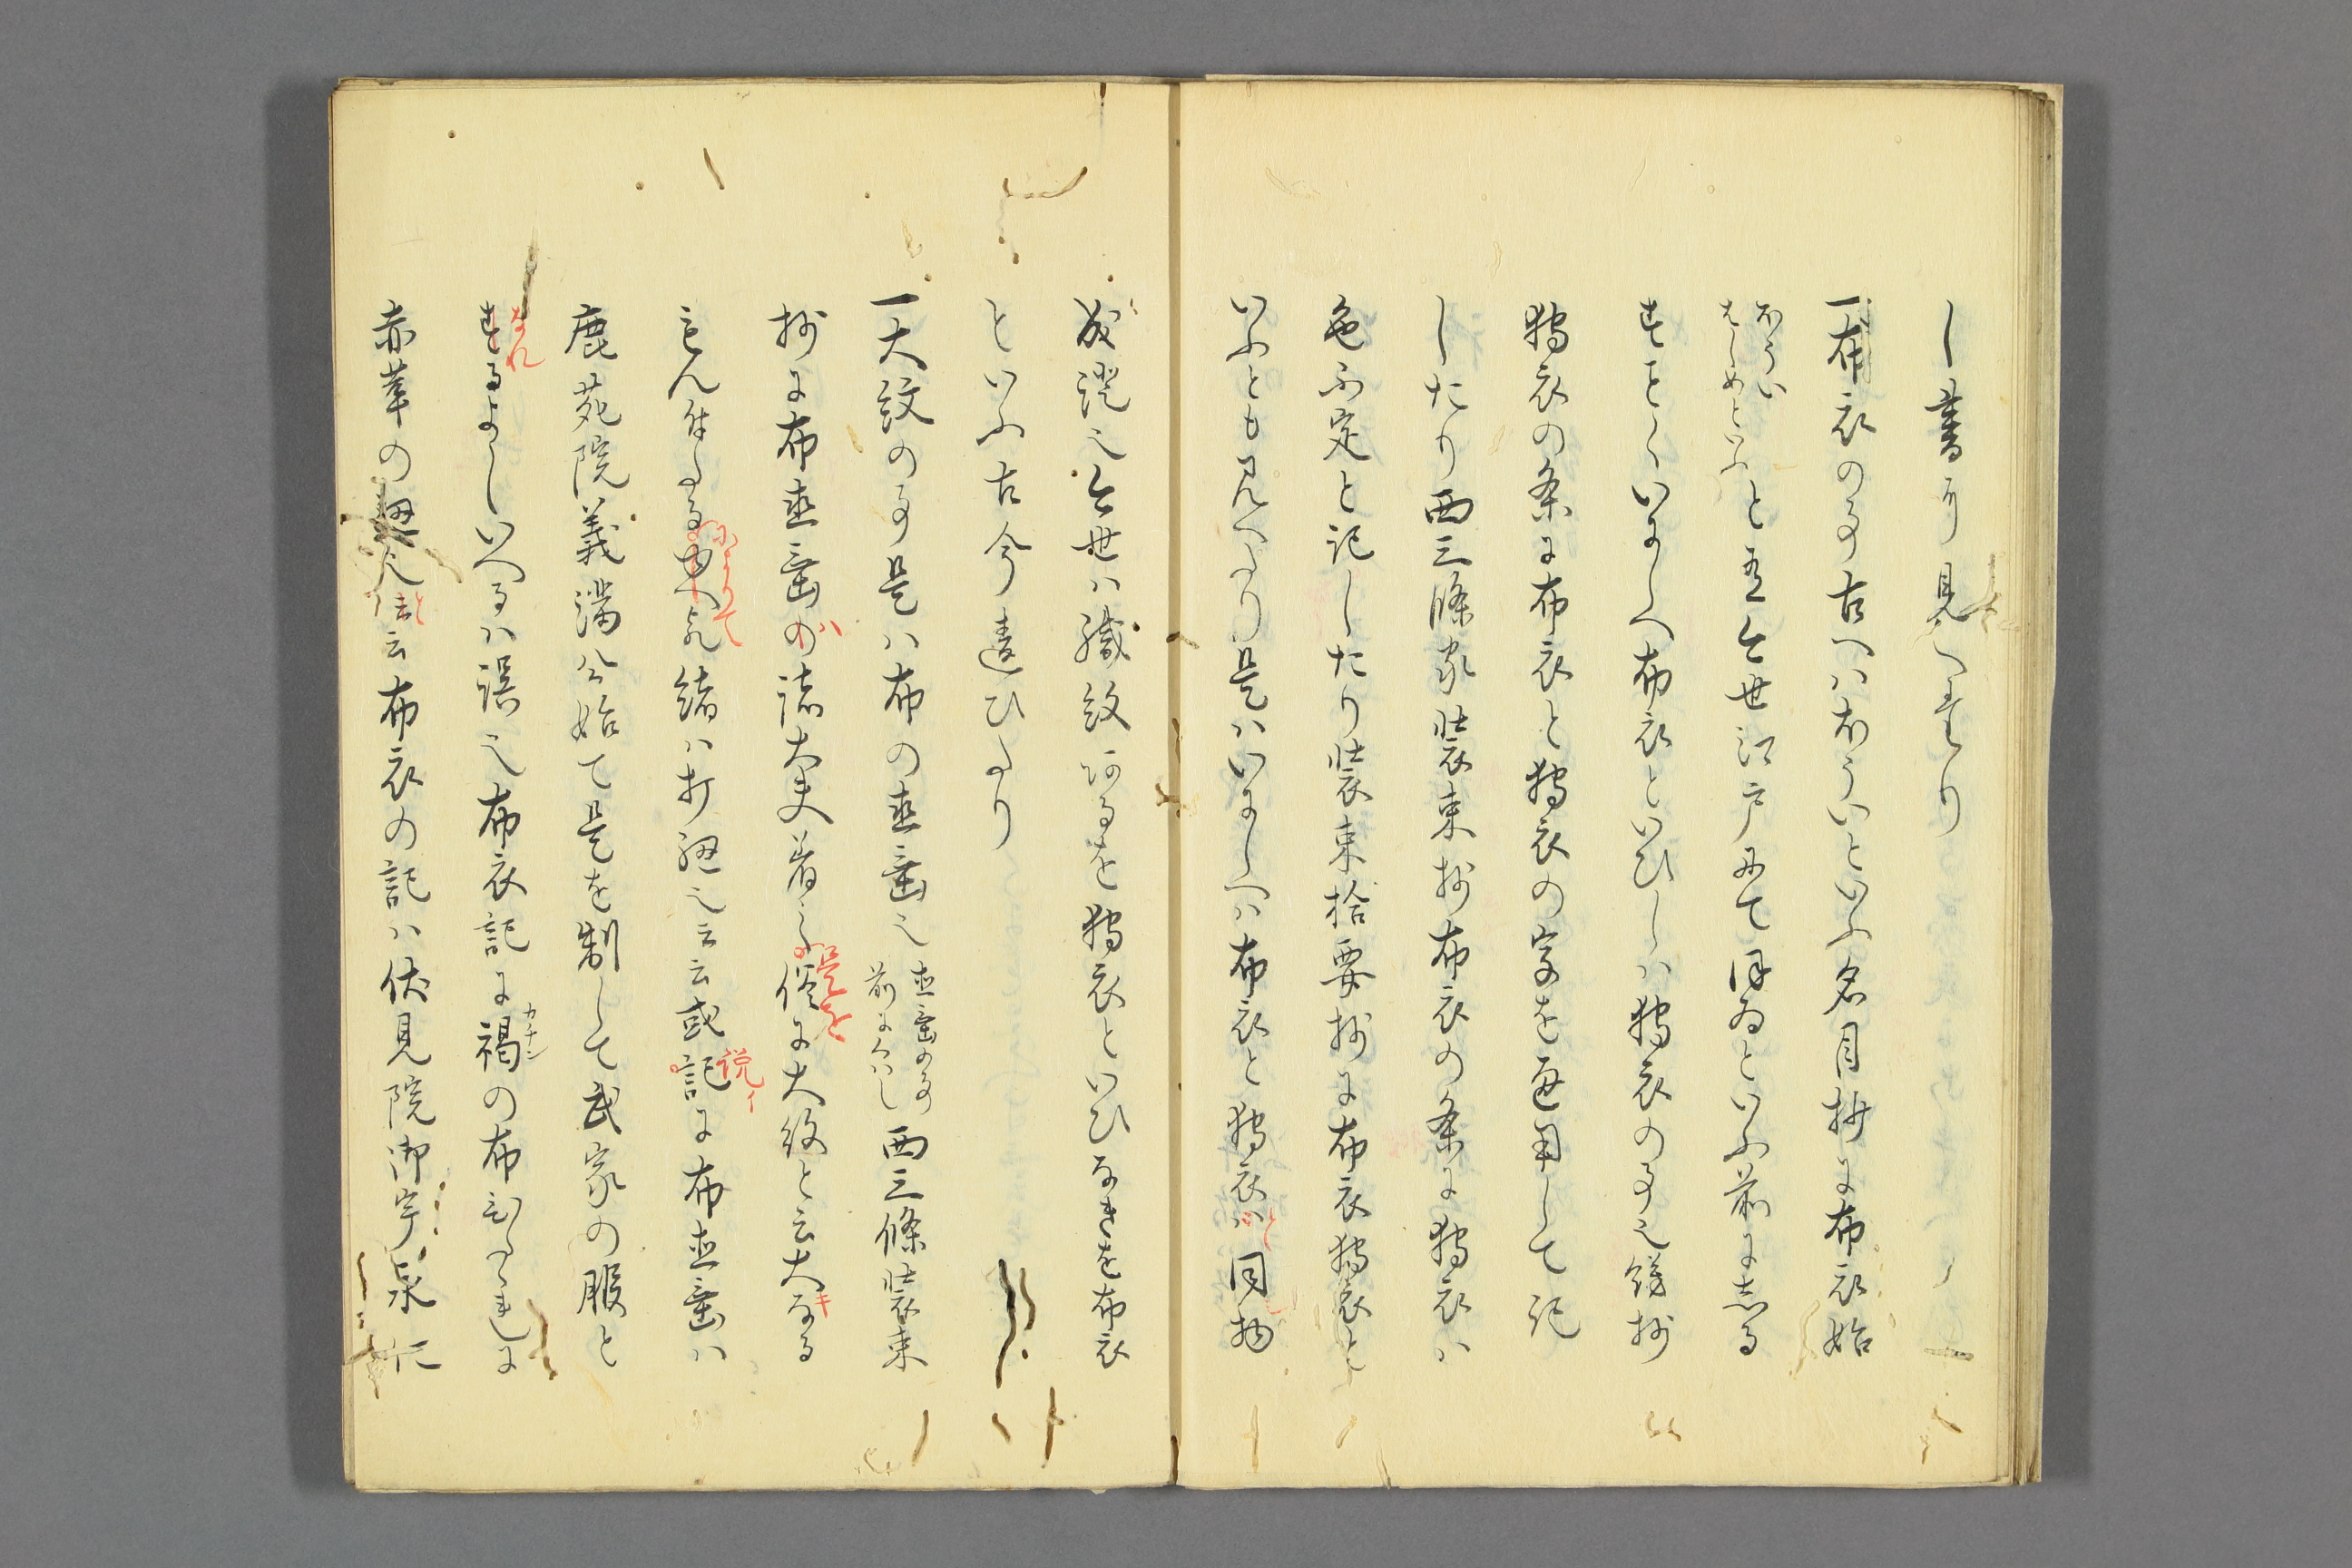 し書に見へたり
一布衣の事古へハほういといふ名目抄に布衣始
ほうい
はしめといふ
と有今世江戸にてほゐといふ前にしる
すことくいにしへ布衣といひしハ狩衣の事也餝抄
狩衣の条に布衣と狩衣の字を通用して記
したり西三條家装束抄布衣の条に狩衣ハ
色不定と記したり装束拾要抄に布衣狩衣と
いふとも見へたり是ハいにしへハ布衣と狩衣ハ同物
と
成證也今世ハ織紋あるを狩衣といひなきを布衣
といふ古今違ひたり
一大紋の事是ハ布の直垂也
直垂の事
前にくハし
西三條装束
抄に布直垂の諸大夫着之俗に大紋と云大なる
ハ
是を
キ
もん付たる故也緒ハ打紐也云云或記に布直垂ハ
によりて
説イ
鹿苑院義満公始て是を制して武家の服と
するよしいへるハ誤也布衣記に褐の布ひたたれに
され
カチン
赤革の紐云云布衣の記ハ伏見院御宇永仁